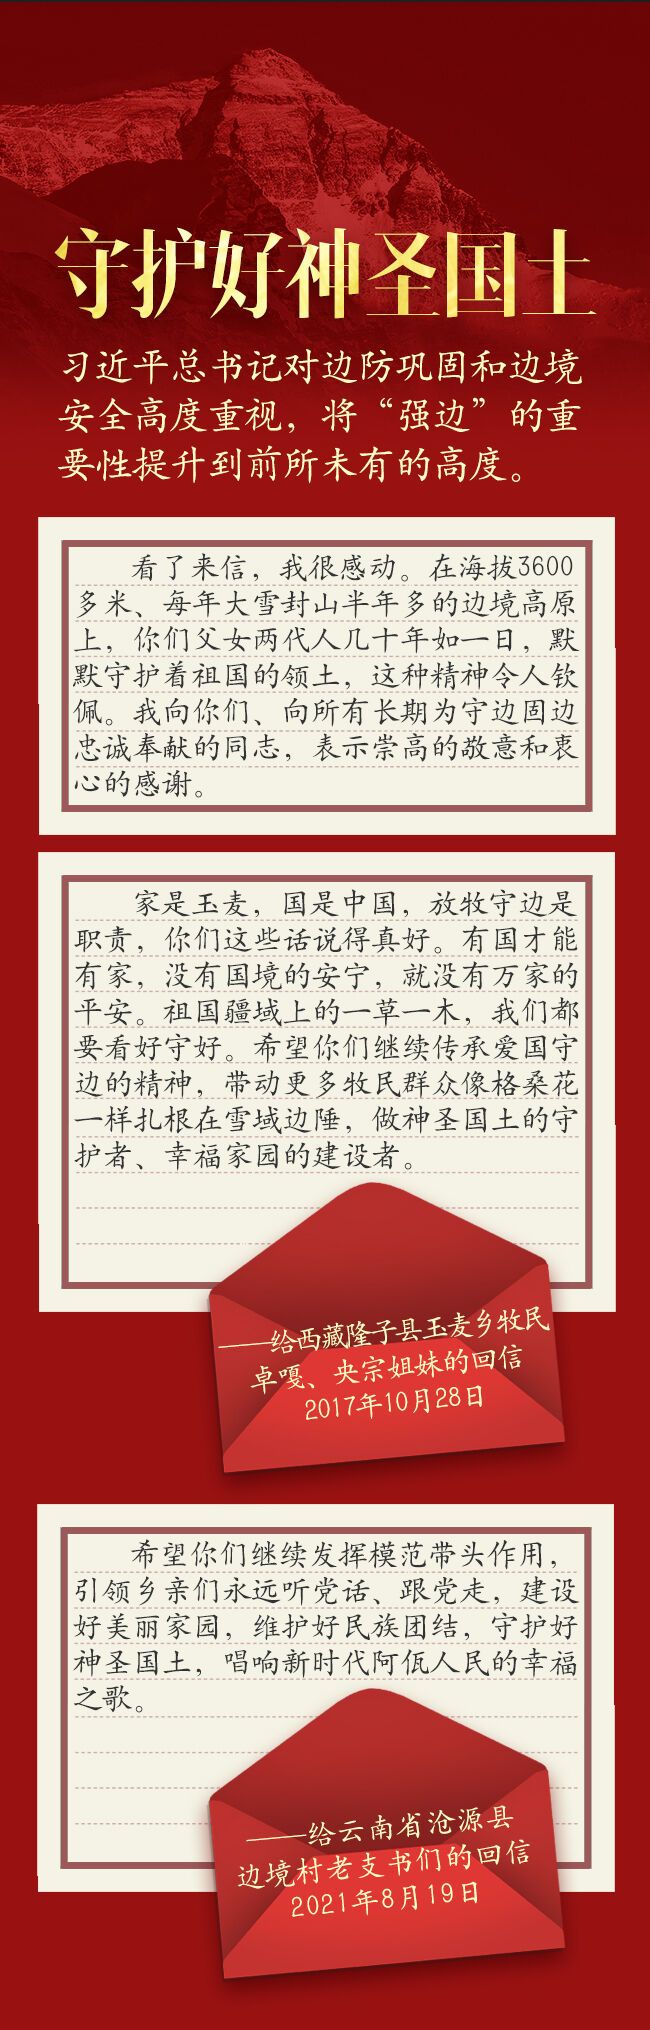 守护好神圣国土
习近平总书记对边防巩固和边境
安全高度重视，将“强边”的重
要性提升到前所未有的高度。
看了来信，我很感动。在海拔3600
多米、每年大雪封山半年多的边境高原
上，你们父女两代人几十年如一日，默
默守护着祖国的领土，这种精神令人钦
佩。我向你们、向所有长期为守边固边
忠诚奉献的同志，表示崇高的敬意和衷
心的感谢。
家是玉麦，国是中国，放牧守边是
职责，你们这些话说得真好。有国才能
有家，没有国境的安宁，就没有万家的
平安。祖国疆域上的一草一木，我们都
要看好守好。希望你们继续传承爱国守
边的精神，带动更多牧民群众像格桑花
一样扎根在雪域边陲，做神圣国土的守
护者、幸福家园的建设者。
——给西藏隆子县玉麦乡牧民
卓嘎、央宗姐妹的回信
2017年10月28日
希望你们继续发挥模范带头作用，
引领乡亲们永远听党话、跟党走，建设
好美丽家园，维护好民族团结，守护好
神圣国土，唱响新时代阿佤人民的幸福
之歌。
——给云南省沧源县
边境村老支书们的回信
2021年8月19日